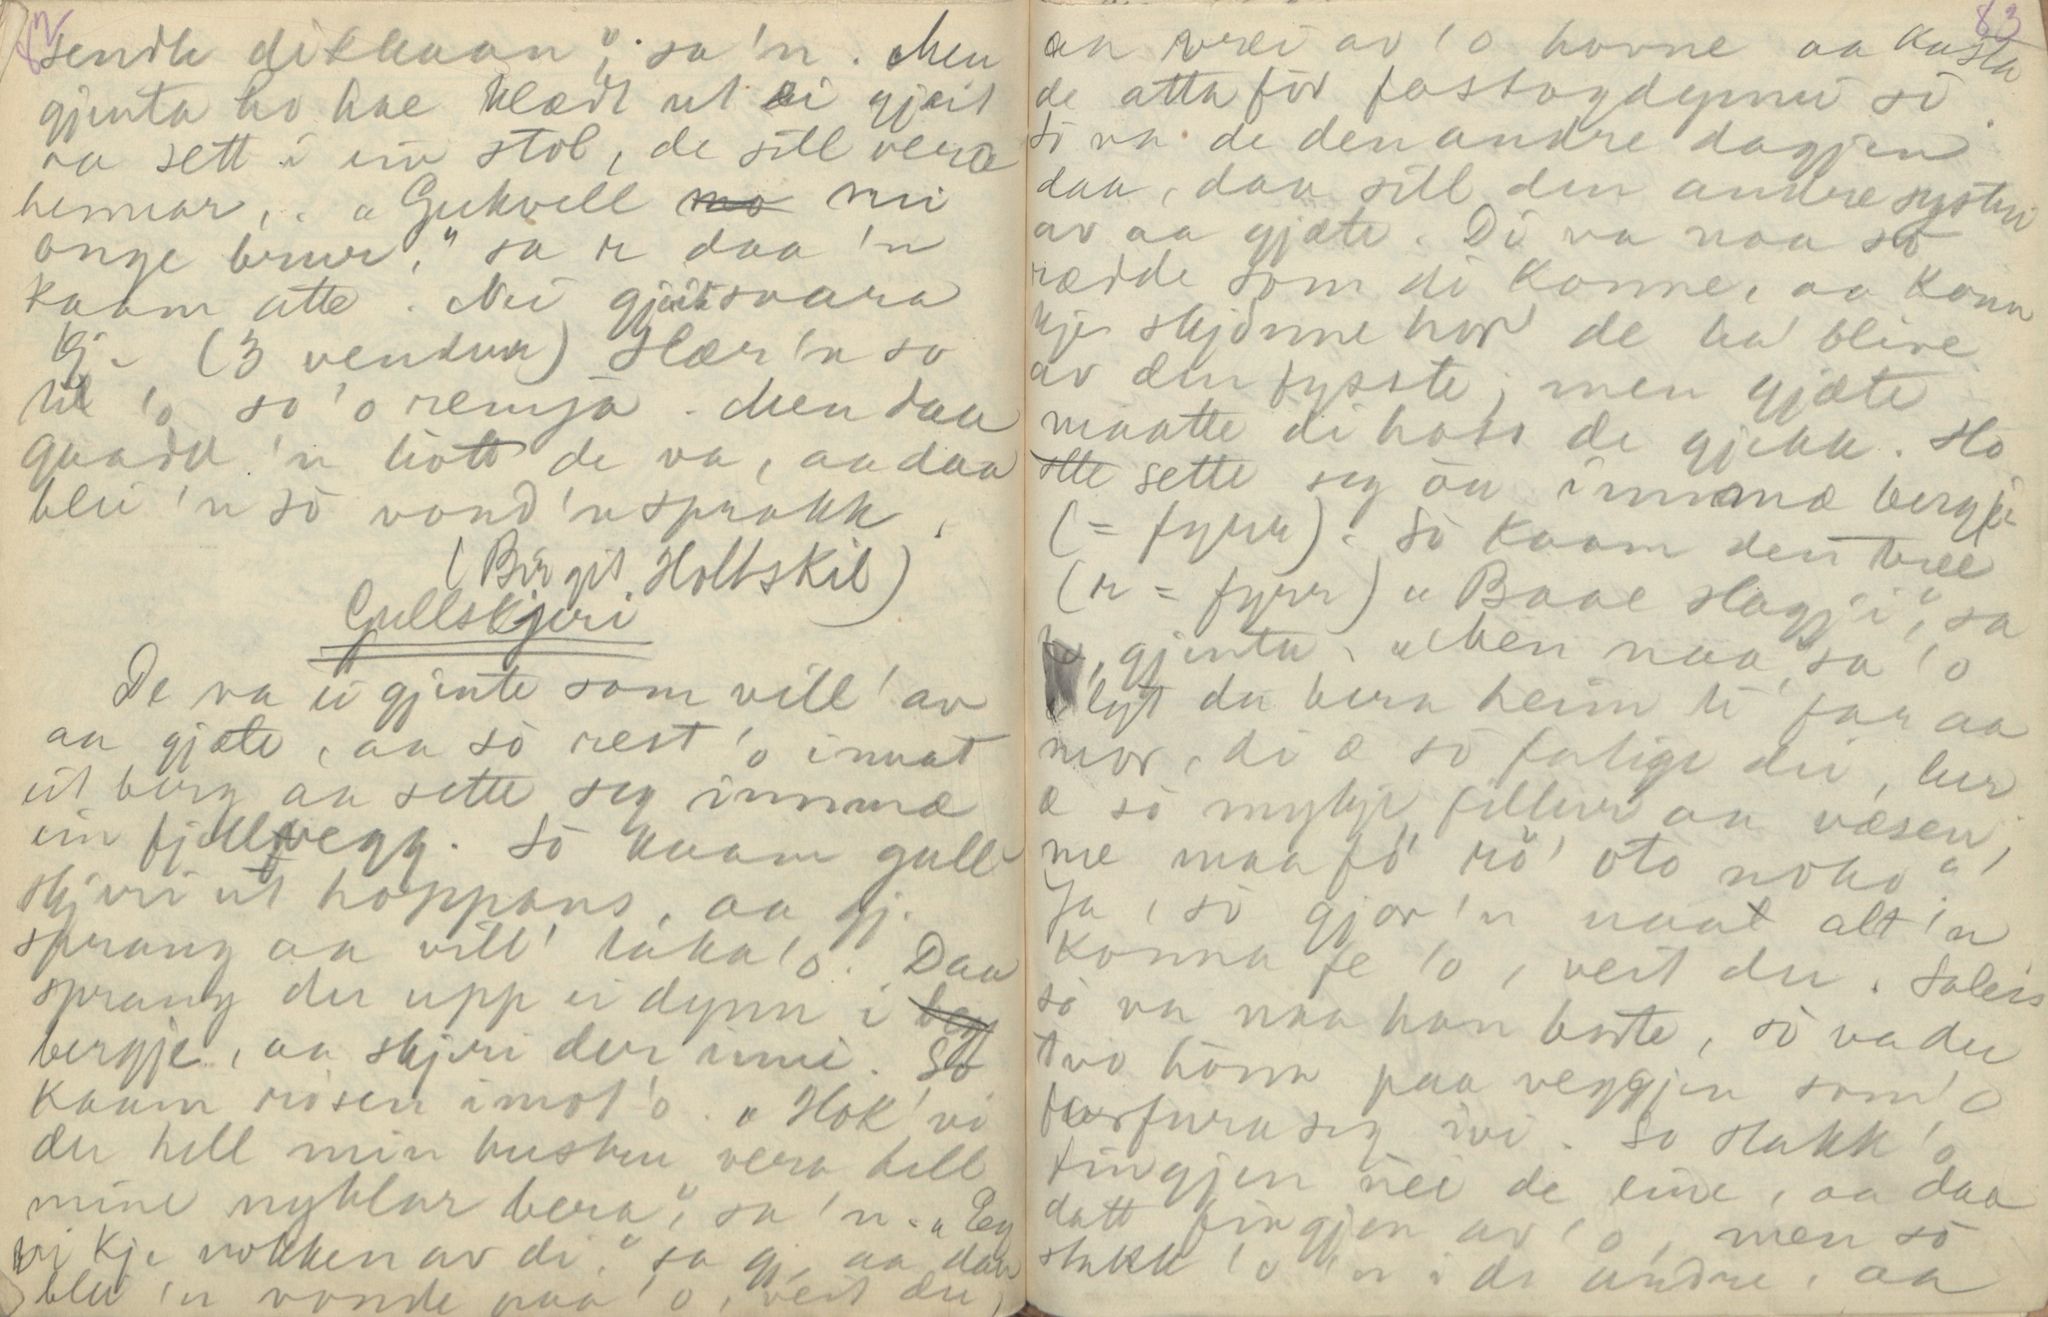 82
sendte dikkaan", sa 'n. Men
gjenta ho hae klædt ut ei gjeit
aa sett i ein stol, de sill vera
hennar, . "Gukvell mo mi
onge brur," sa r daa 'n
kaam atte. Nei gjeiti svara
kj. (3 vendur) Slær 'n so
til 'o so 'o remja. Men daa
gaadd 'n hott de va, aa daa
blei 'n sò vond 'n sprakk.
(Birgit Holtskil)
Gullskjeri
De va ei gjente som vill' av
aa gjæte, aa sò rest 'o innat
eit berg aa sette seg innmæ
ein fjellvegg. Sò kaam gull
skjeri ut hoppans, aa gj.
sprang aa vill' taka 'o. Daa
sprang der upp ei dynn i beg
bergje, aa skjeri der inni. So
kaam risen imot 'o. "Hok' vi
du hell min hustru vera hell
mine nyklar bera," sa 'n. "Eg
vi kje nokken av di." sa gj, aa daa
blei 'n vonde paa 'o, veit du,
83
aa vrei av 'o hovue aa kasta
de atta för fostogdynni si.
Sò va de den andre dagjen
daa, daa sill den andre systeri
av aa gjæte. Di va naa so
rædde som di konne, aa konn
kje skjönne hor de ha' blive
av den fysste, men gjæte
maatte di hoss de gjekk. Ho
stte sette seg òu innmæ bergje
(= fyrr). Sò kaam den tree
(r = fyrr) "Baae slagji", sa
gjenta. "Men naa", sa 'o
"lyt du bera heim ti far aa
mor, di æ sò fatige dei, her
æ sò mykje filleur aa væsen,
me maa fò' rö' oto noko".
Ja, sò gjor 'n naat alt 'n
konna fe 'o, veit du. Saleis
sò va naa han borte, sò va der
tvo hòna paa veggjen som 'o
forfura seg ivi. So stakk 'o
fingjen nei de eine, aa daa
datt fingjen av 'o, men sò
stakk 'o 'n i de andre, aa